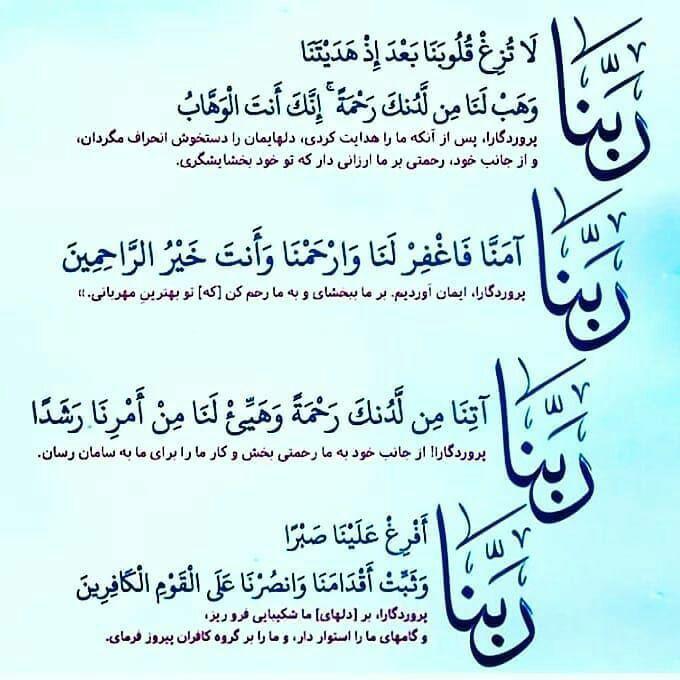 رَبَّنَا لَا تُزِغْ قُلُوبَنَا بَعْدَ إِذْ هَدَيْتَنَا
وَهَبْ لَنَا مِن لَّدُنكَ رَحْمَةً ۚ إِنَّكَ أَنتَ الْوَهَّابُ
پروردگارا، پس از آنکه ما را هدایت کردی، دلهایمان را دستخوش انحراف مگردان،
و از جانب خود، رحمتی بر ما ارزانی دار که تو خود بخشایشگری.
رَبَّنَا آمَنَّا فَاغْفِرْ لَنَا وَارْحَمْنَا وَأَنتَ خَيْرُ الرَّاحِمِينَ
پروردگارا، ایمان آوردیم. بر ما ببخشای و به ما رحم کن [که] تو بهترین مهربانی.»
رَبَّنَا آتِنَا مِن لَّدُنكَ رَحْمَةً وَهَيِّئْ لَنَا مِنْ أَمْرِنَا رَشَدًا
پروردگارا! از جانب خود به ما رحمتی بخش و کار ما را برای ما به سامان رسان.
رَبَّنَا أَفْرِغْ عَلَيْنَا صَبْرًا
وَثَبِّتْ أَقْدَامَنَا وَانصُرْنَا عَلَى الْقَوْمِ الْكَافِرِينَ
پروردگارا، بر [دلهای] ما شکیبایی فرو ریز،
و گامهای ما را استوار دار، و ما را بر گروه کافران پیروز فرمای.